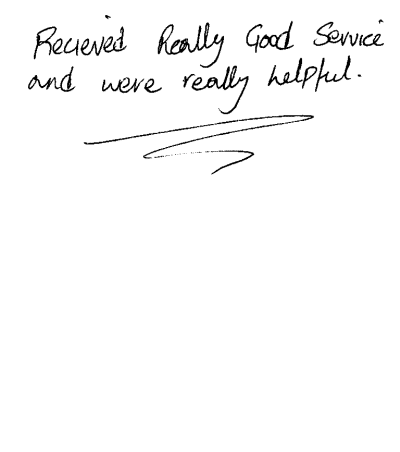 Recieved Really Good Service
and were really helpful.